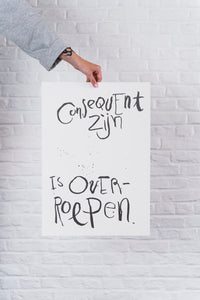 ConsEQUEnt
Zijn
Is OVER-
RoEpEN.